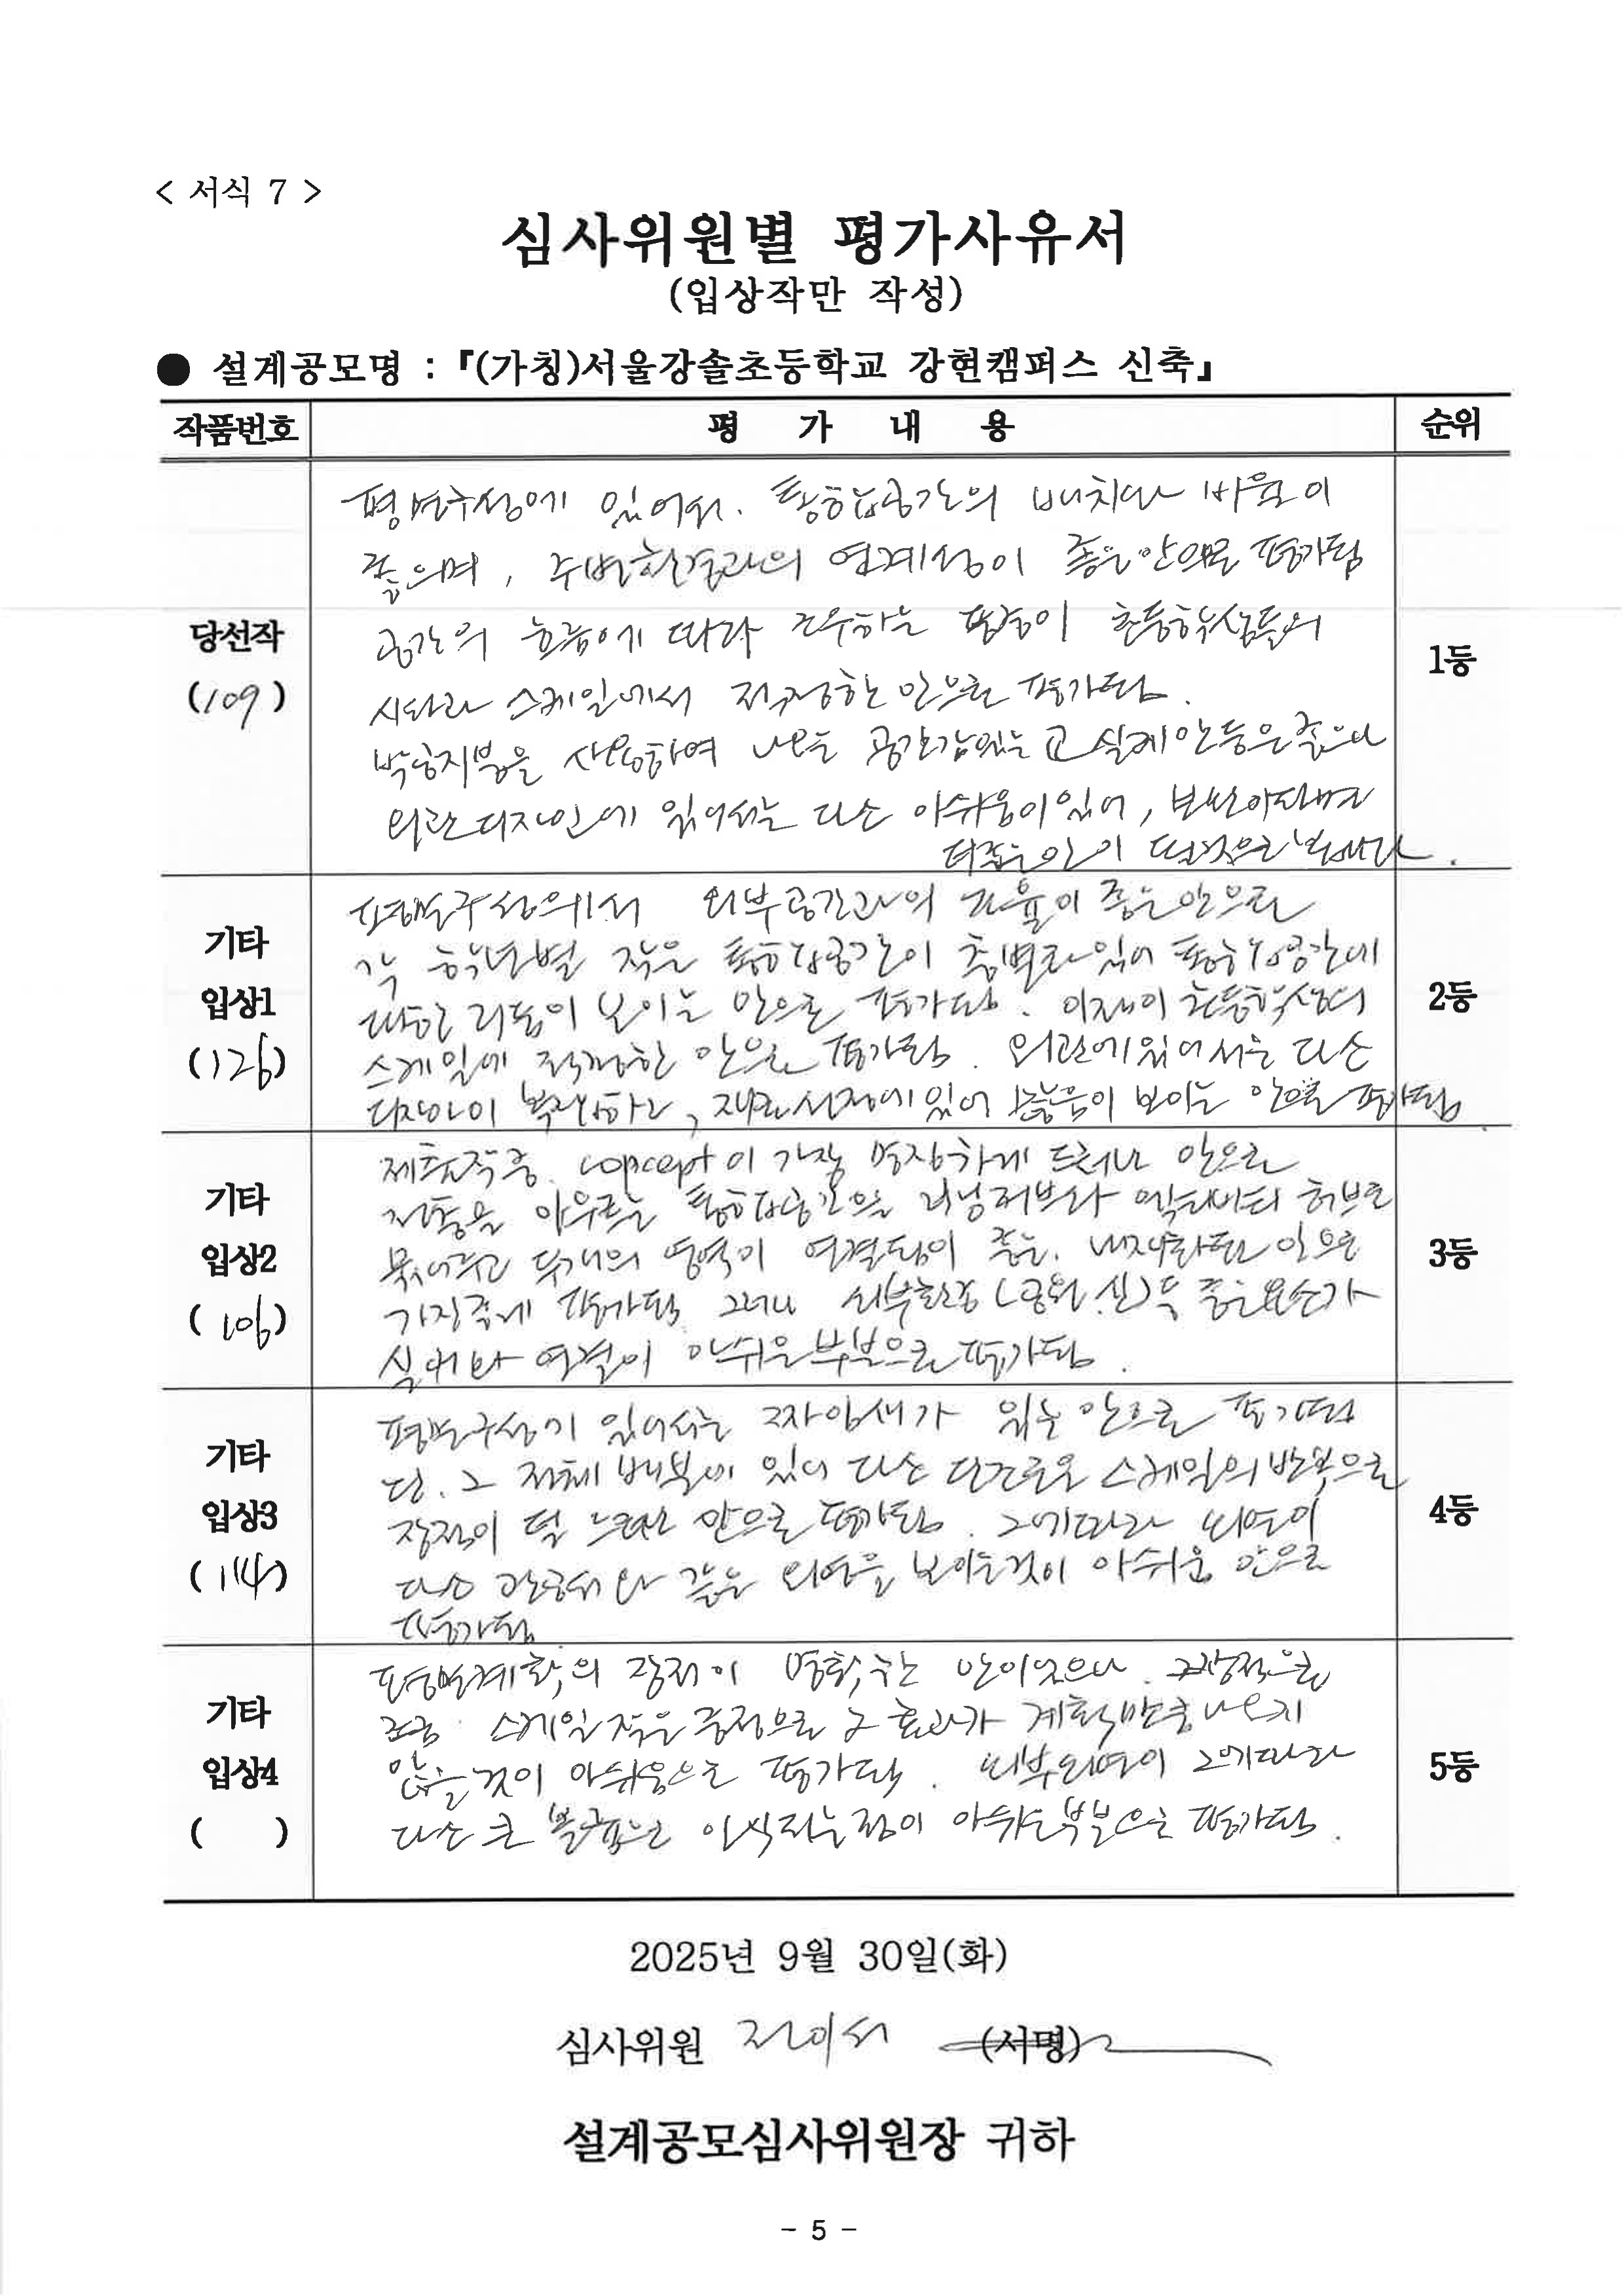 < 서식 7 >
심사위원별 평가사유서
(입상작만 작성)
● 설계공모명 : 『(가칭)서울강솔초등학교 강현캠퍼스 신축』
작품번호 평 가 내 용 순위
당선작
(109)
평면구성에 있어서. 통합공간의 배치나 비율이
좋으며, 주변환경과의 연계성이 좋은 안으로 평가됨
공간의 흐름에 따라 조우하는 풍경이 초등학생들의
시각과 스케일에서 적정한 안으로 평가됨.
박공지붕을 사용하여 나온 공간감있는 교실계안등은 좋으나
외관디자인에 있어서는 다소 아쉬움이 있어, 보완하자면
더좋은 안이 될것으로
1등
기타
입상1
(126)
평면구성에서 외부공간과의 조율이 좋은 안으로
각 학년별 작은 통합공간이 층별로 있어 통합공간에
대한 리듬이 보이는 안으로 평가됨. 초등학생의
스케일에 적정한 안으로 평가됨. 외관에 있어서는 다소
디자인이 복잡하고, 재료선정에 있어 많음이 보이는 안으로 평가됨
2등
기타
입상2
(106)
제출작중. concept이 가장 명징하게 드러난 안으로
저층을 아우르는 통합공간을 러닝허브와 액티비티 허브로
묶어주고 두개의 영역이 연결됨이 좋은. 안으로
가장좋게 평가됨. 그러나 외부환경 (공원, 산)등 좋은요소가
실내와 연결이 아쉬운 부분으로 평가됨.
3등
기타
입상3
(114)
평면구성에 있어서는 짜임새가 있는 안으로 평가됨
단. 그 전체 배분에 있어 다소 단조로운 스케일의 반복으로
장점이 덜 느껴진 안으로 평가됨. 그에따라 외연이
다소 관공서와 같은 외연을 보이는것이 아쉬운 안으로
평가됨
4등
기타
입상4
( )
평면계획의 장점이 명확한 안이었으나.
조금 스케일 작은 중정으로 그 효과가 계획만큼 나오지
않은 것이 아쉬움으로 평가됨. 외부외연이 그에따라
다소 큰 볼륨으로 인식되는점이 아쉬운 부분으로 평가됨.
5등
2025년 9월 30일(화)
심사위원 (서명)
설계공모심사위원장 귀하
- 5 -